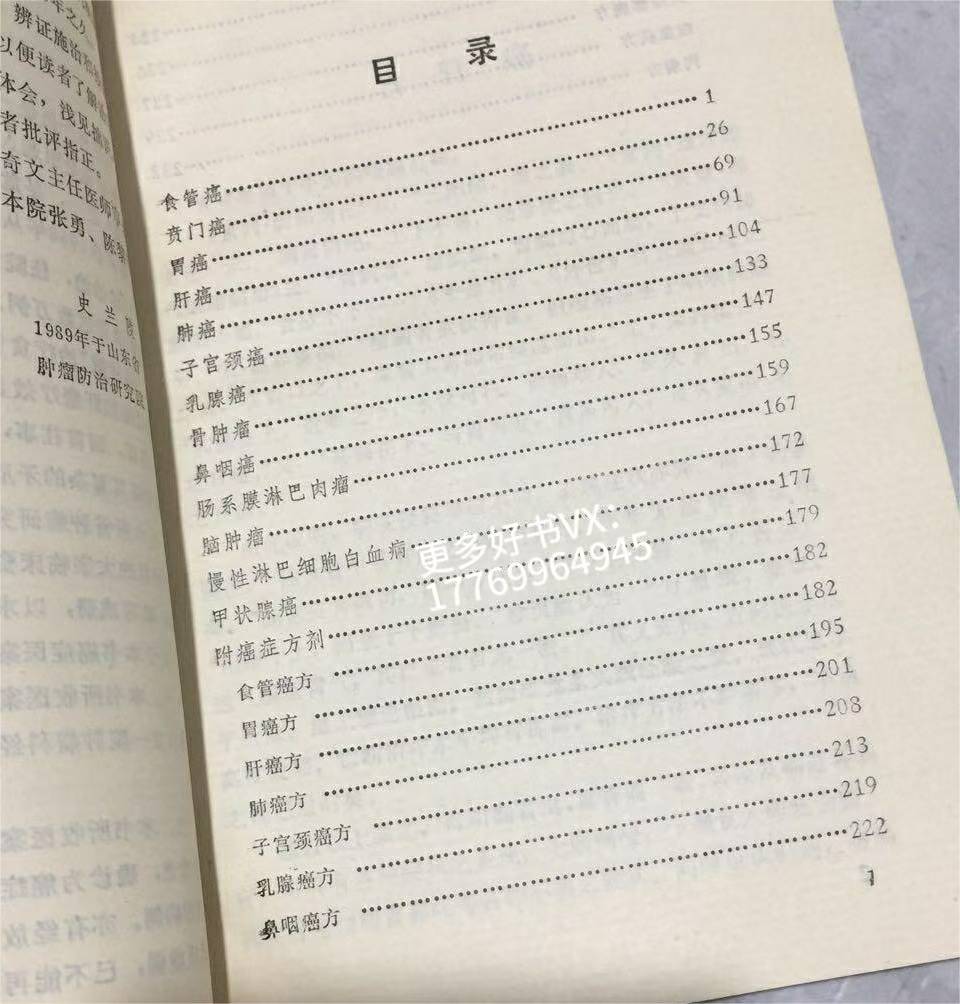 年之久
辨证施治和
以便读者了解
体会，浅见
者批评指正。
奇文主任医师
本院张勇、陈
史兰陵
1989年于山东省
肿瘤防治研究院
目录
食管癌……1
贲门癌……26
胃癌……69
肝癌……91
肺癌……104
子宫颈癌……133
乳腺癌……147
骨肿瘤……155
鼻咽癌……159
肠系膜淋巴肉瘤……167
脑肿瘤……172
慢性淋巴细胞白血病……177
甲状腺癌……179
附癌症方剂……182
食管癌方……182
胃癌方……195
肝癌方……201
肺癌方……208
子宫颈癌方……213
乳腺癌方……219
鼻咽癌方……222
1
更多好书VX：
17769964945